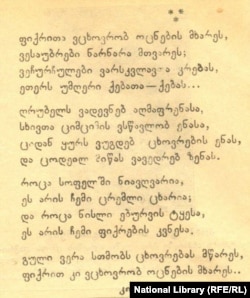 **
ფიქრითა ვცხოვრობ ოცნების მხარეს,
ვესაუბრები ნარნარა მთვარეს;
ვეჩურჩულები ვარსკვლავ-ა კრებას,
ეთერს უმღერი ქებათა—ქებას...
ღრუბელს ვადევნებ აღმაფრენასა,
სხივთა ციმციმის ვსწავლობ ენასა,
ციდან ყურს ვუგდებ ცხოვრების ენას,
და ცოდვილ მიწას ვავედრებ ზენას.
როცა სოფელში ნიავღვარია,
ეს არის ჩემი ცრემლი ცხარია;
და როცა ნისლი ებურვის ტყესა,
ეს არის ჩემი ფიქრების კვნესა.
გული ვერა სთმობს ცხოვრებას მწარეს,
ფიქრით კი ვცხოვრობ ოცნების მხარეს..
National Library (RFE/RL)